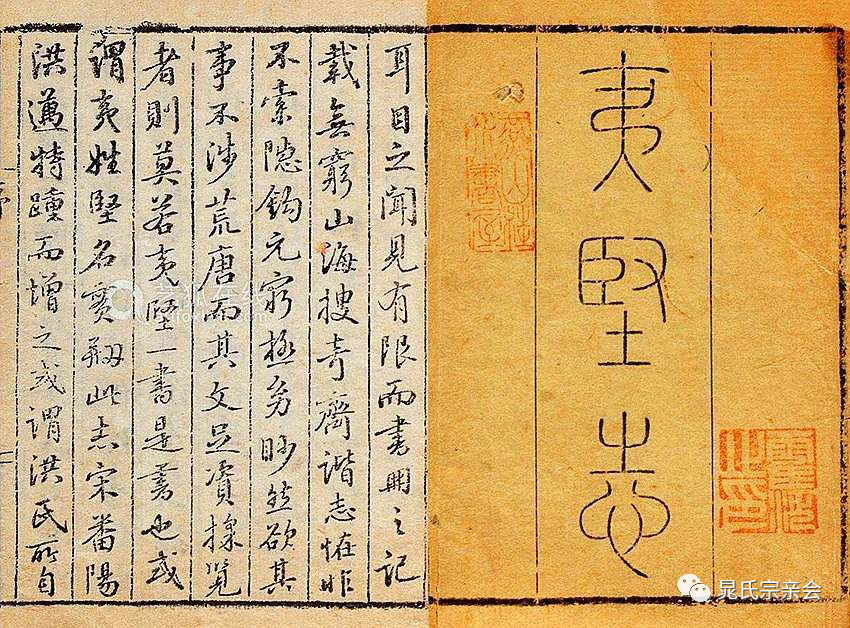 夷堅志
耳目之聞見有限而書冊之記
載無窮山海搜奇齊諧志怪非
不索隱鈎元窮極幼眇然欲其
事不涉荒唐而其文足資採覽
者則莫若夷堅一書是書也或
謂夷姓堅名實剏此志宋番陽
洪邁特踵而增之或謂洪氏所自
晁氏宗亲会